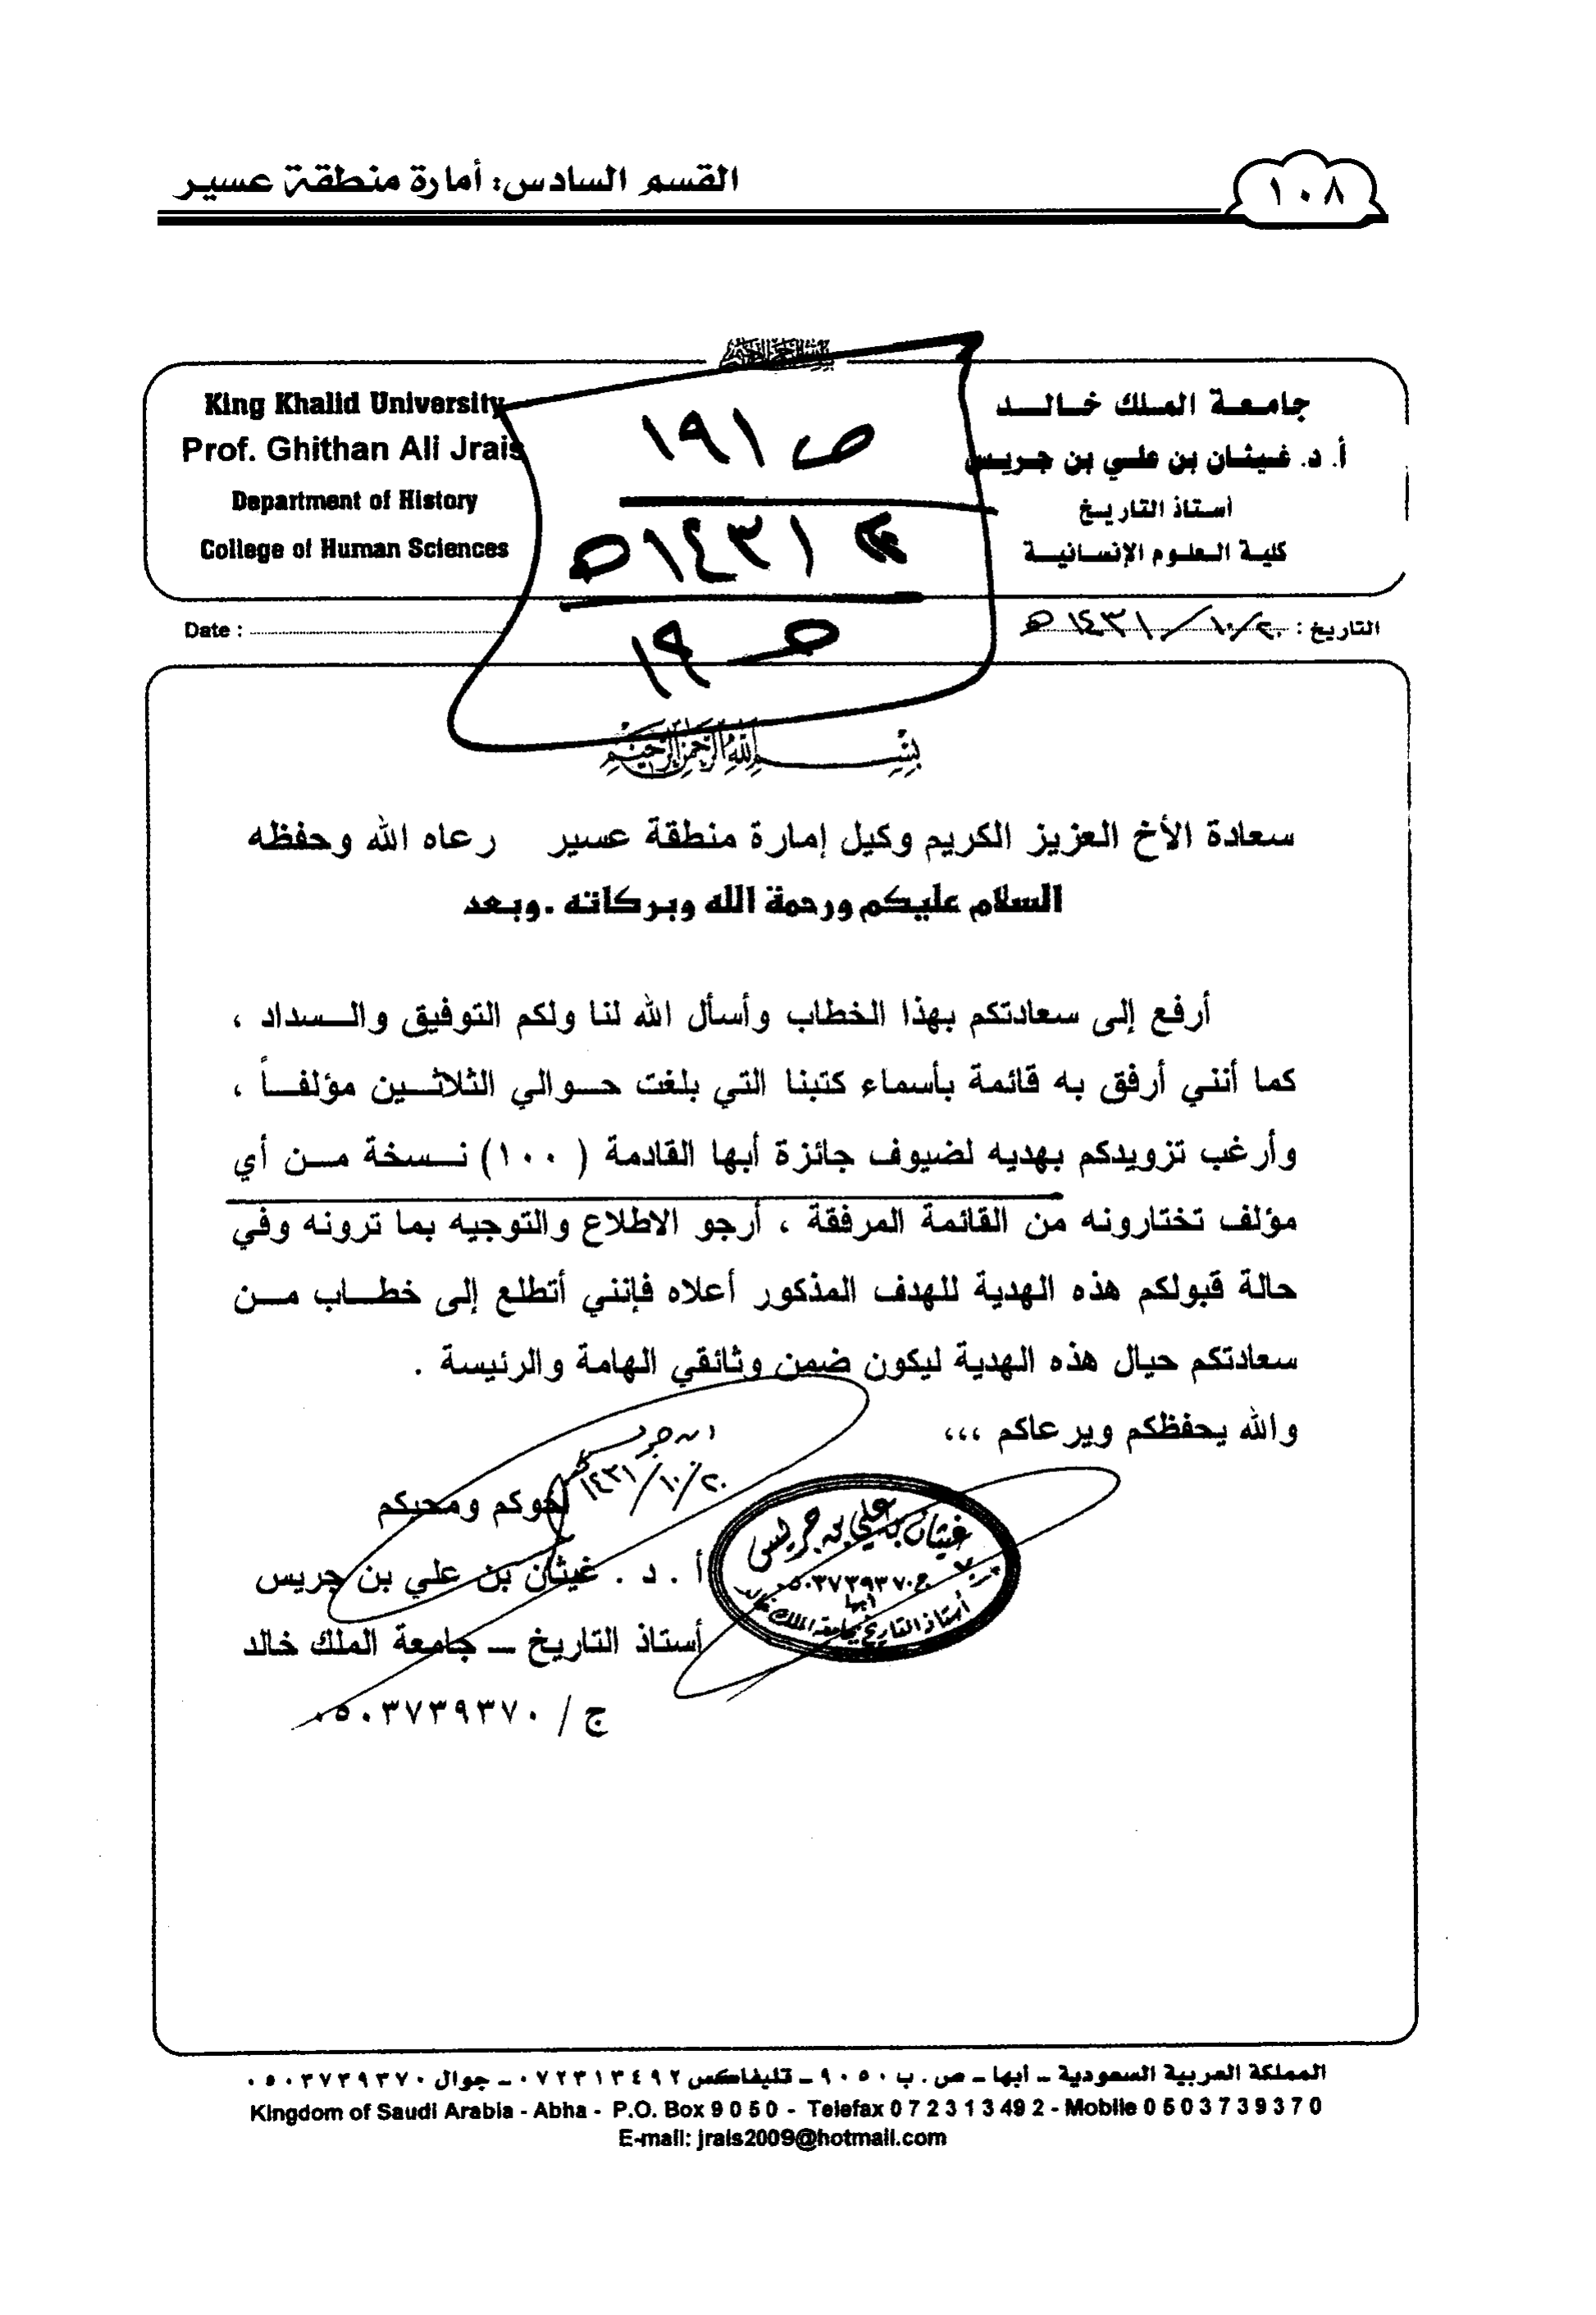 ١٠٨
القسم السادس: أمارة منطقة عسير
جامعة الملك خالد
أ. د. غيثان بن علي بن جريس
أستاذ التاريخ
كلية العلوم الإنسانية
King Khalid University
Prof. Ghithan Ali Jrais
Department of History
College of Human Sciences
ص ١٩١
١٤٣١هـ
ص ١٩
التاريخ : ٢٠/١٠/١٤٣١هـ
Date :
بسم الله الرحمن الرحيم
سعادة الأخ العزيز الكريم وكيل إمارة منطقة عسير رعاه الله وحفظه
السلام عليكم ورحمة الله وبركاته .وبعد
أرفع إلى سعادتكم بهذا الخطاب وأسأل الله لنا ولكم التوفيق والسداد ،
كما أنني أرفق به قائمة بأسماء كتبنا التي بلغت حوالي الثلاثين مؤلفاً ،
وأرغب تزويدكم بهديه لضيوف جائزة أبها القادمة ( ١٠٠) نسخة من أي
مؤلف تختارونه من القائمة المرفقة ، أرجو الاطلاع والتوجيه بما ترونه وفي
حالة قبولكم هذه الهدية للهدف المذكور أعلاه فإنني أتطلع إلى خطاب من
سعادتكم حيال هذه الهدية ليكون ضمن وثائقي الهامة والرئيسة .
والله يحفظكم ويرعاكم ،،،
ابن جريس
٢٠/١٠/١٤٣١
أخوكم ومحبكم
أ . د . غيثان بن علي بن جريس
أستاذ التاريخ – جامعة الملك خالد
ج / ٠٥٠٣٧٣٩٣٧٠
غيثان بن علي بن جريس
ج ٠٥٠٣٧٣٩٣٧٠
أبها
أستاذ التاريخ بجامعة الملك خالد
المملكة العربية السعودية – أبها – ص . ب ٩٠٥٠ – تليفاكس ٠٧٢٣١٣٤٩٢ – جوال ٠٥٠٣٧٣٩٣٧٠
Kingdom of Saudi Arabia - Abha - P.O. Box 9 0 5 0 - Telefax 0 7 2 3 1 3 49 2 - Mobile 0 5 0 3 7 3 9 3 7 0
E-mail: jrais2009@hotmail.com